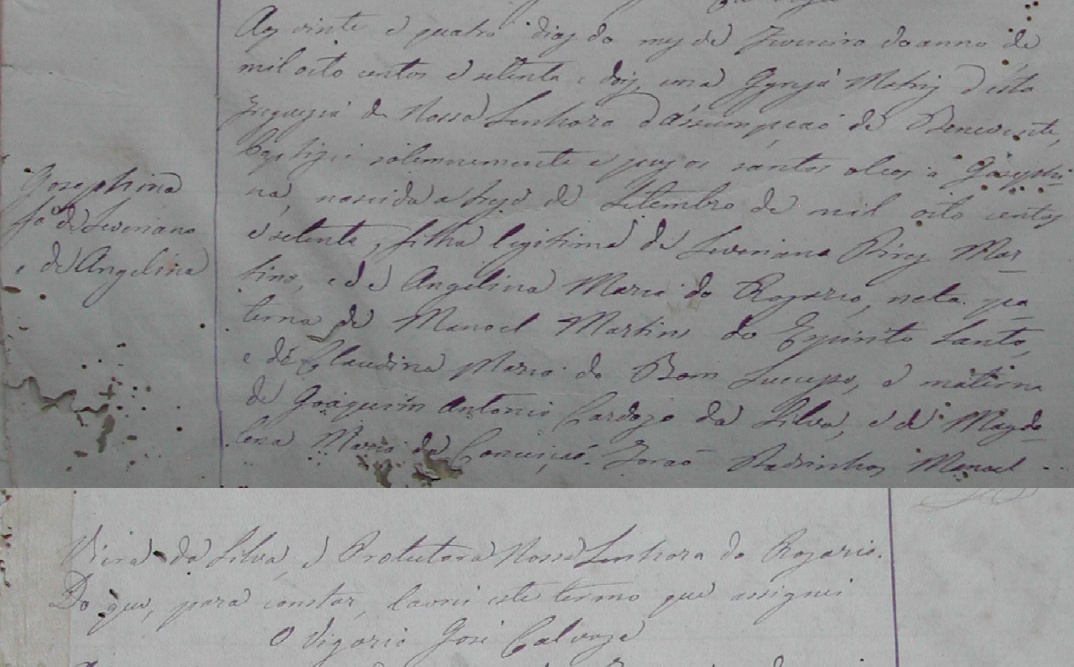 Josephina
fa de Severiano
e de Angelina
Aos vinte e quatro dias do mes de Fevereiro do anno de
mil oito centos e setenta e dois, n'esta Igreja Matriz d'esta
Freguezia de Nossa Senhora d'Assumpção de Benevente,
baptizei solemnemente e puz os santos oleos a Josephi-
na, nascida a treze de Setembro de mil oito centos
e setenta, filha legitima de Severiano Pires Mar-
tins, e de Angelina Maria do Rozario, neta pa-
terna de Manoel Martins do Espirito Santo,
e de Claudina Maria do Bom Successo, e materna
de Joaquim Antonio Cardozo da Silva, e de Magda-
lena Maria da Conceição. Forão Padrinhos Manoel
da Silva, e Protectora Nossa Senhora do Rozario.
Do que, para constar, lavrei este termo que assignei
O Vigario José